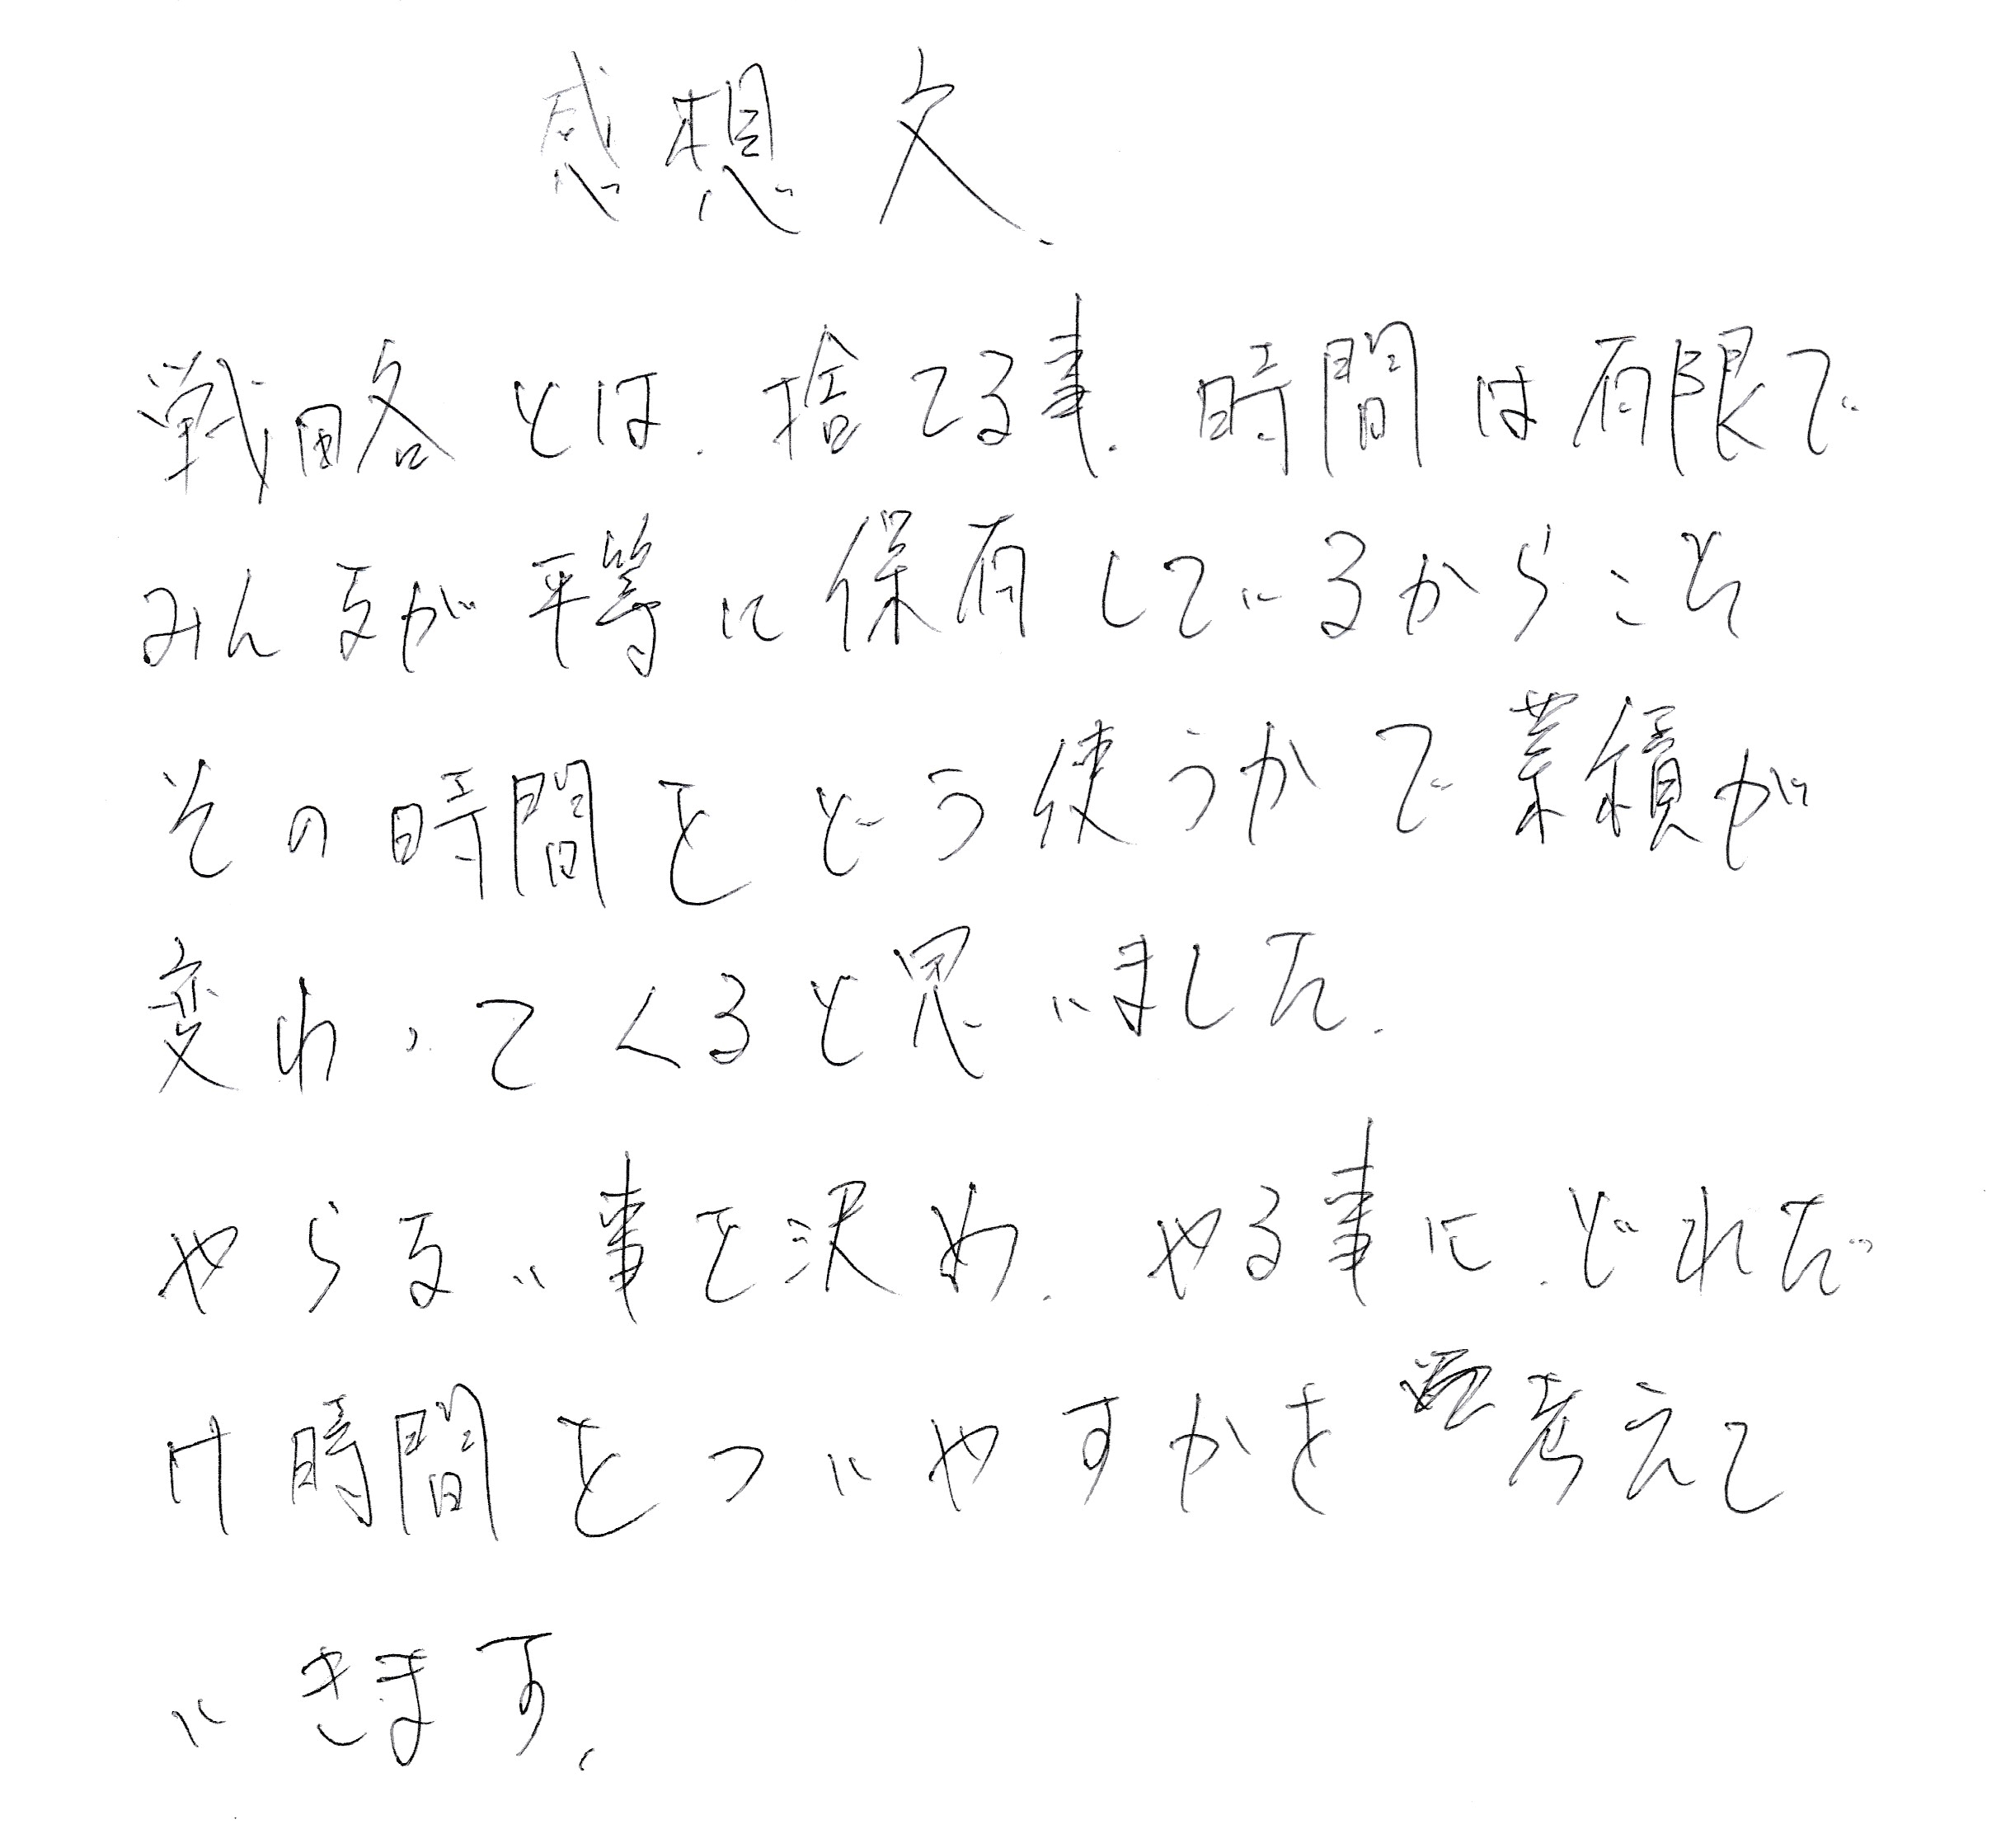 感想文.
戦略とは、捨てる事、時間は有限で
みんなが平等に保有しているからこそ
その時間をどう使うかで業績が
変わってくると思いました。
やらない事を決め、やる事に、どれだ
け時間をついやすかを考えて
いきます。